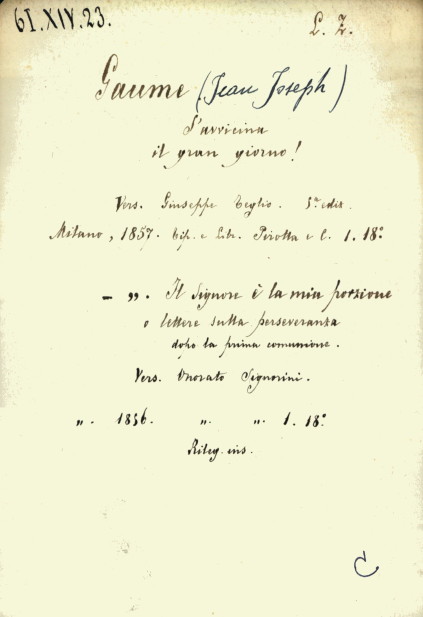 61.XIV.23.
L. Z.
Gaume (Jean Joseph)
S'avvicina
il gran giorno!
Vers. Giuseppe Teglio. 5ª ediz.
Milano, 1857. Tip. e Libr. Pirotta e C. 1. 18º
— ". Il Signore è la mia porzione
o lettere sulla perseveranza
dopo la prima comunione.
Vers. Onorato Signorini.
". 1856. ". ". 1. 18º
Rileg. ins.
C